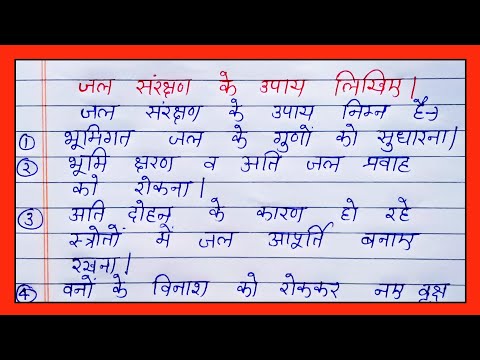 जल संरक्षण के उपाय लिखिए।
जल संरक्षण के उपाय निम्न है-
① भूमिगत जल के गुणों को सुधारना।
② भूमि क्षरण व अति जल प्रवाह
को रोकना।
③ अति दोहन के कारण हो रहे
स्त्रोतों में जल आपूर्ति बनाए
रखना।
④ वनों के विनाश को रोककर नए वृक्ष